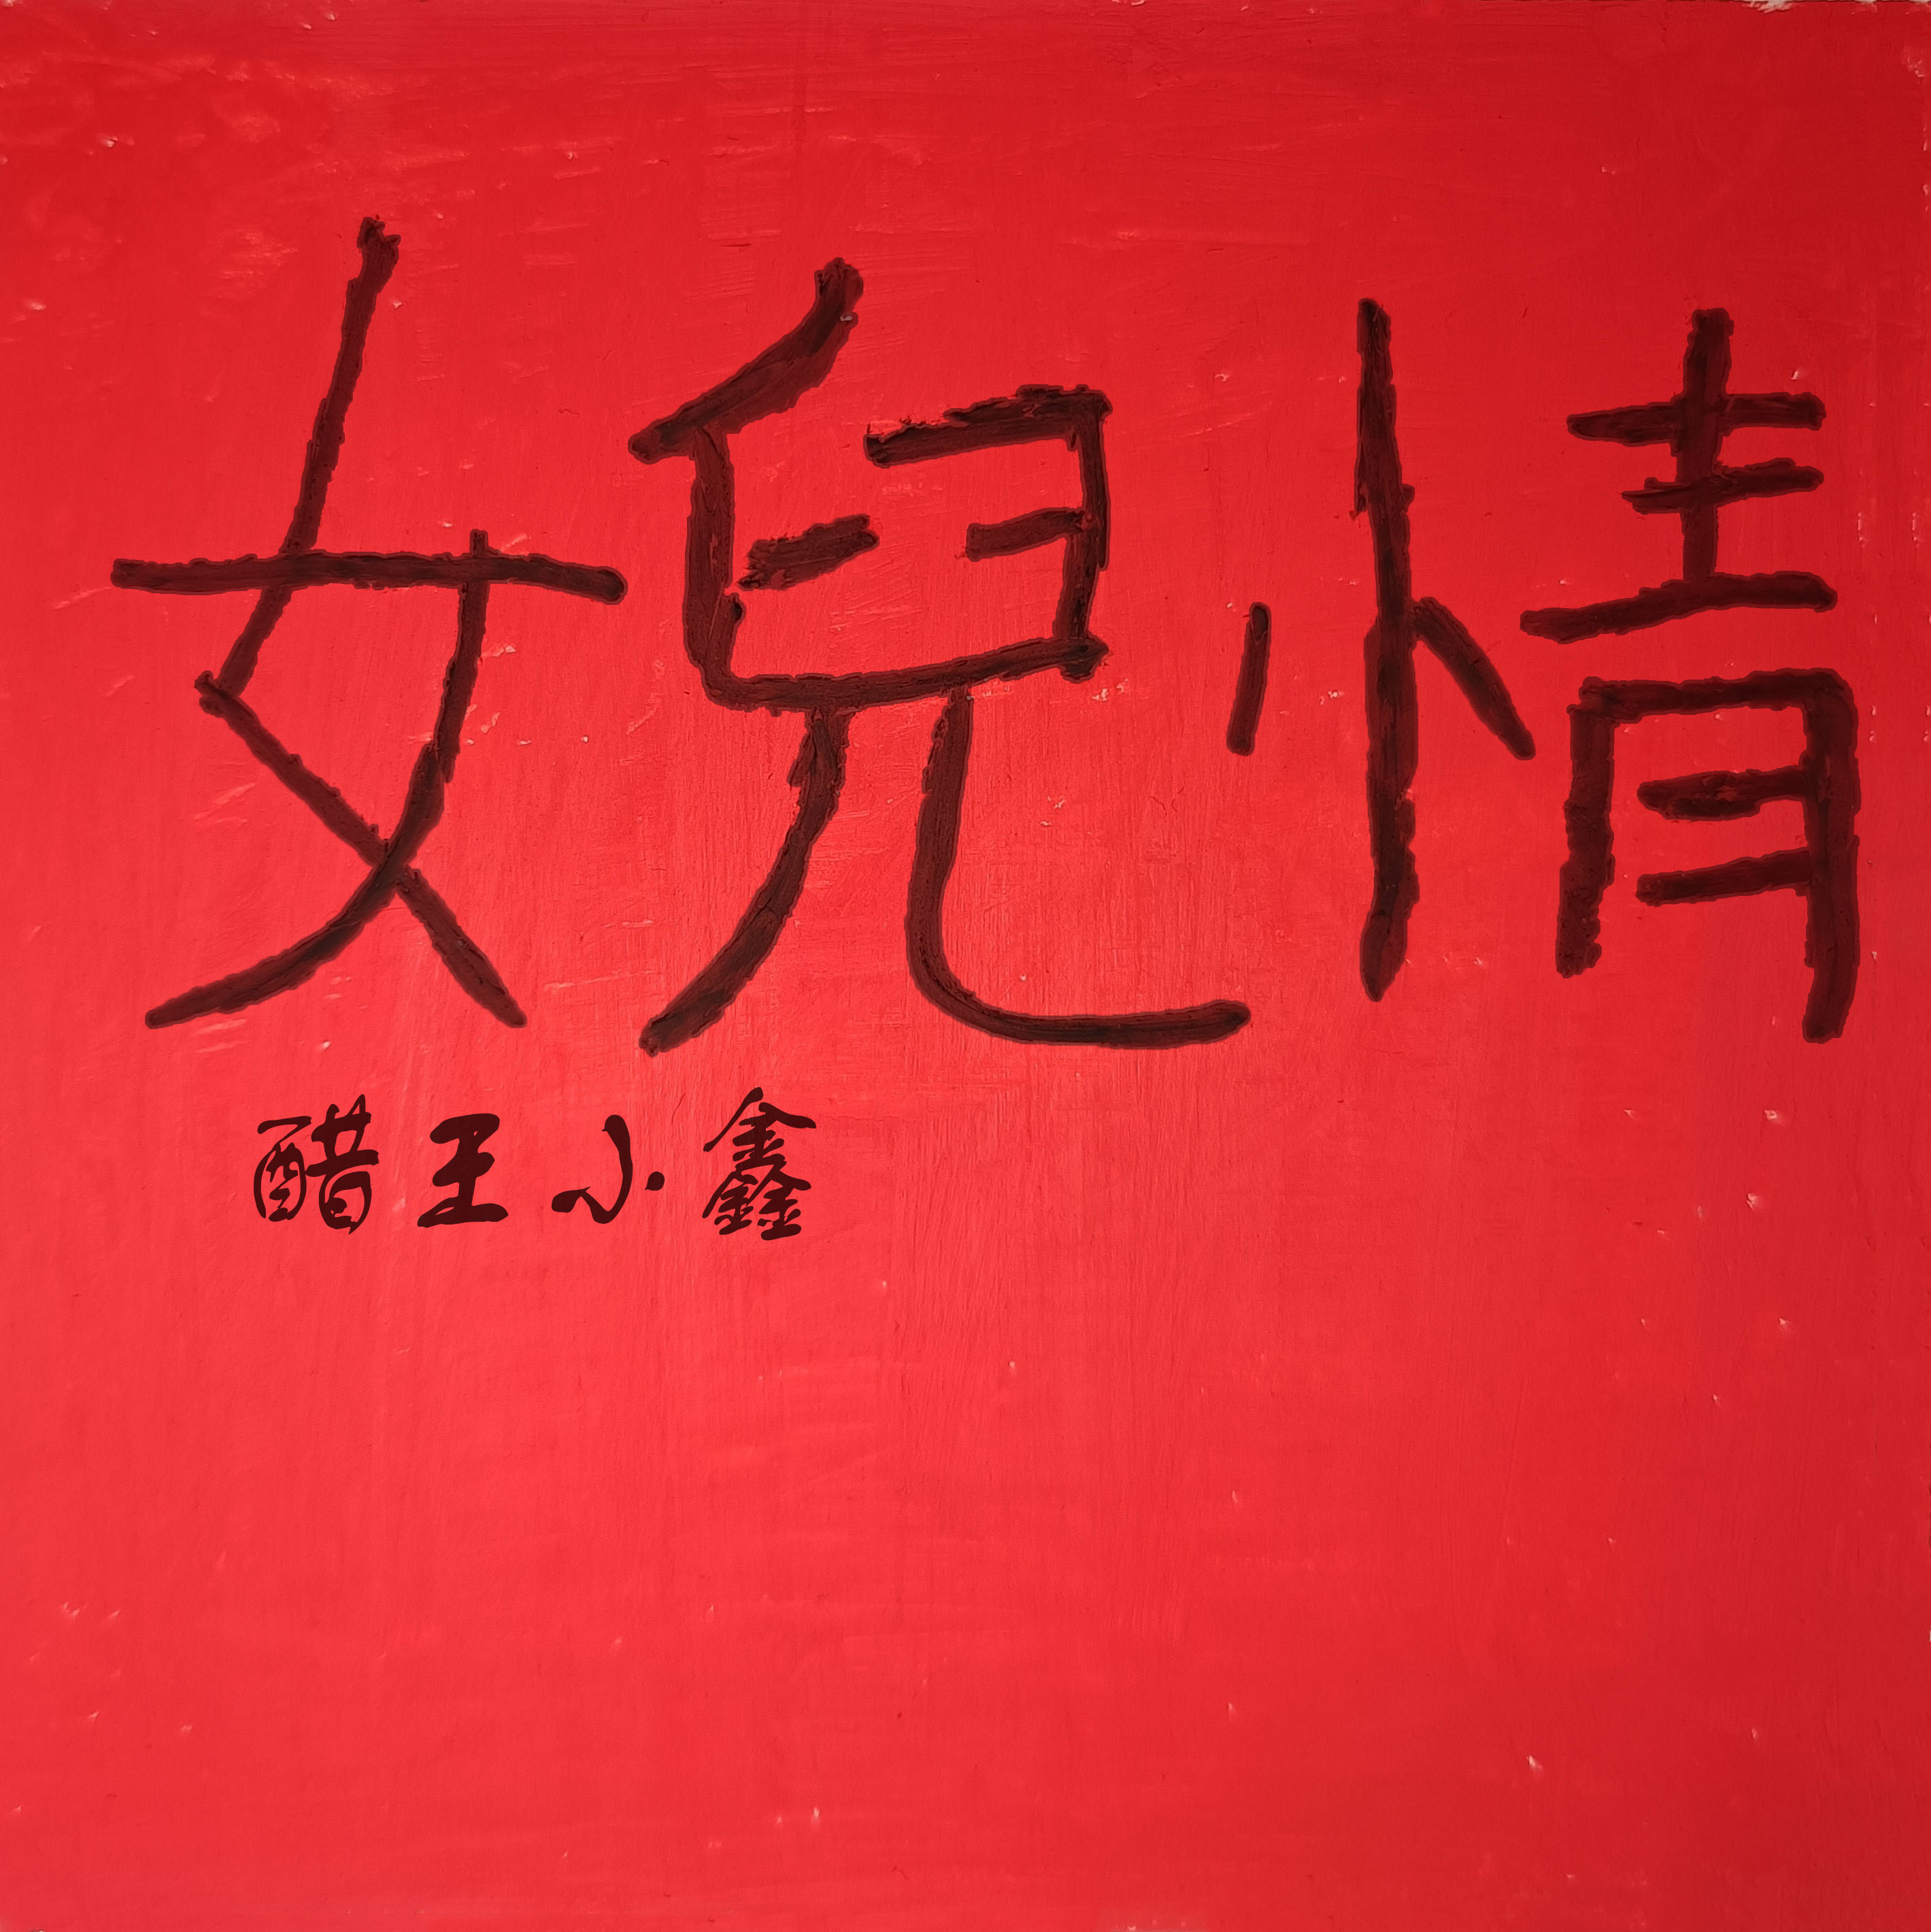 女兒情
醋王小鑫